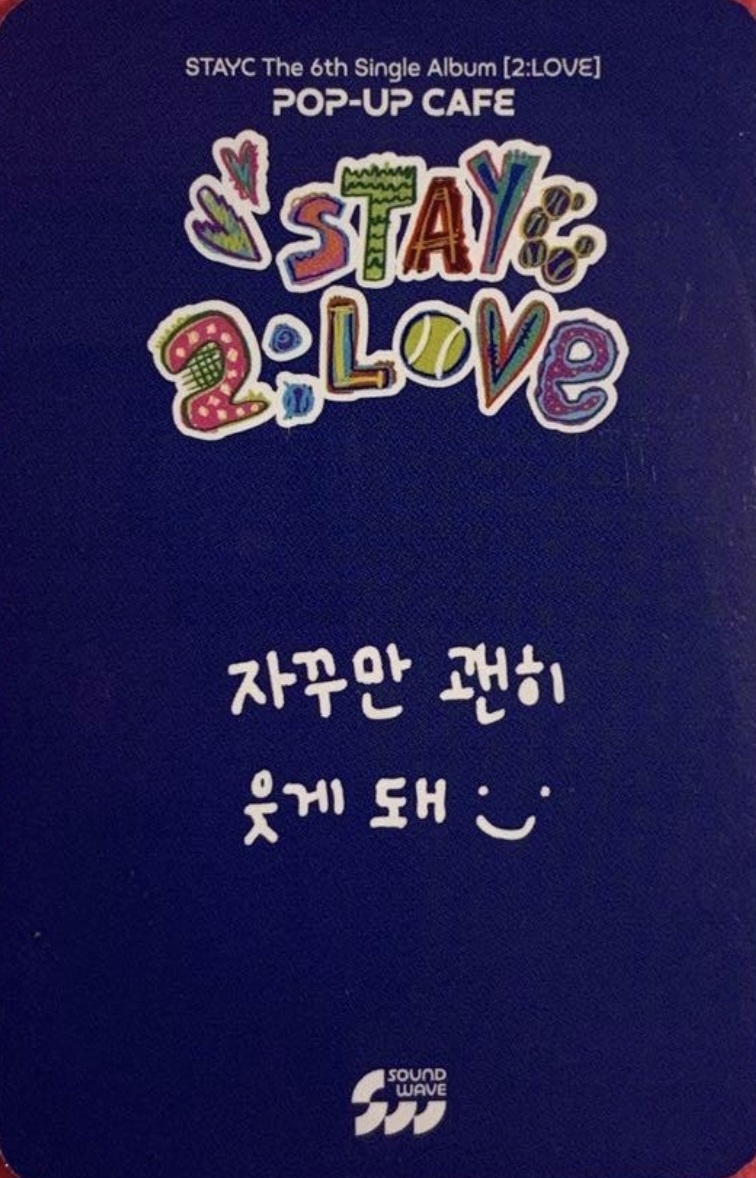 STAYC The 6th Single Album [2:LOVE]
POP-UP CAFE
STAYC
2:LOVe
자꾸만 괜히
웃게 돼
SOUND
WAVE